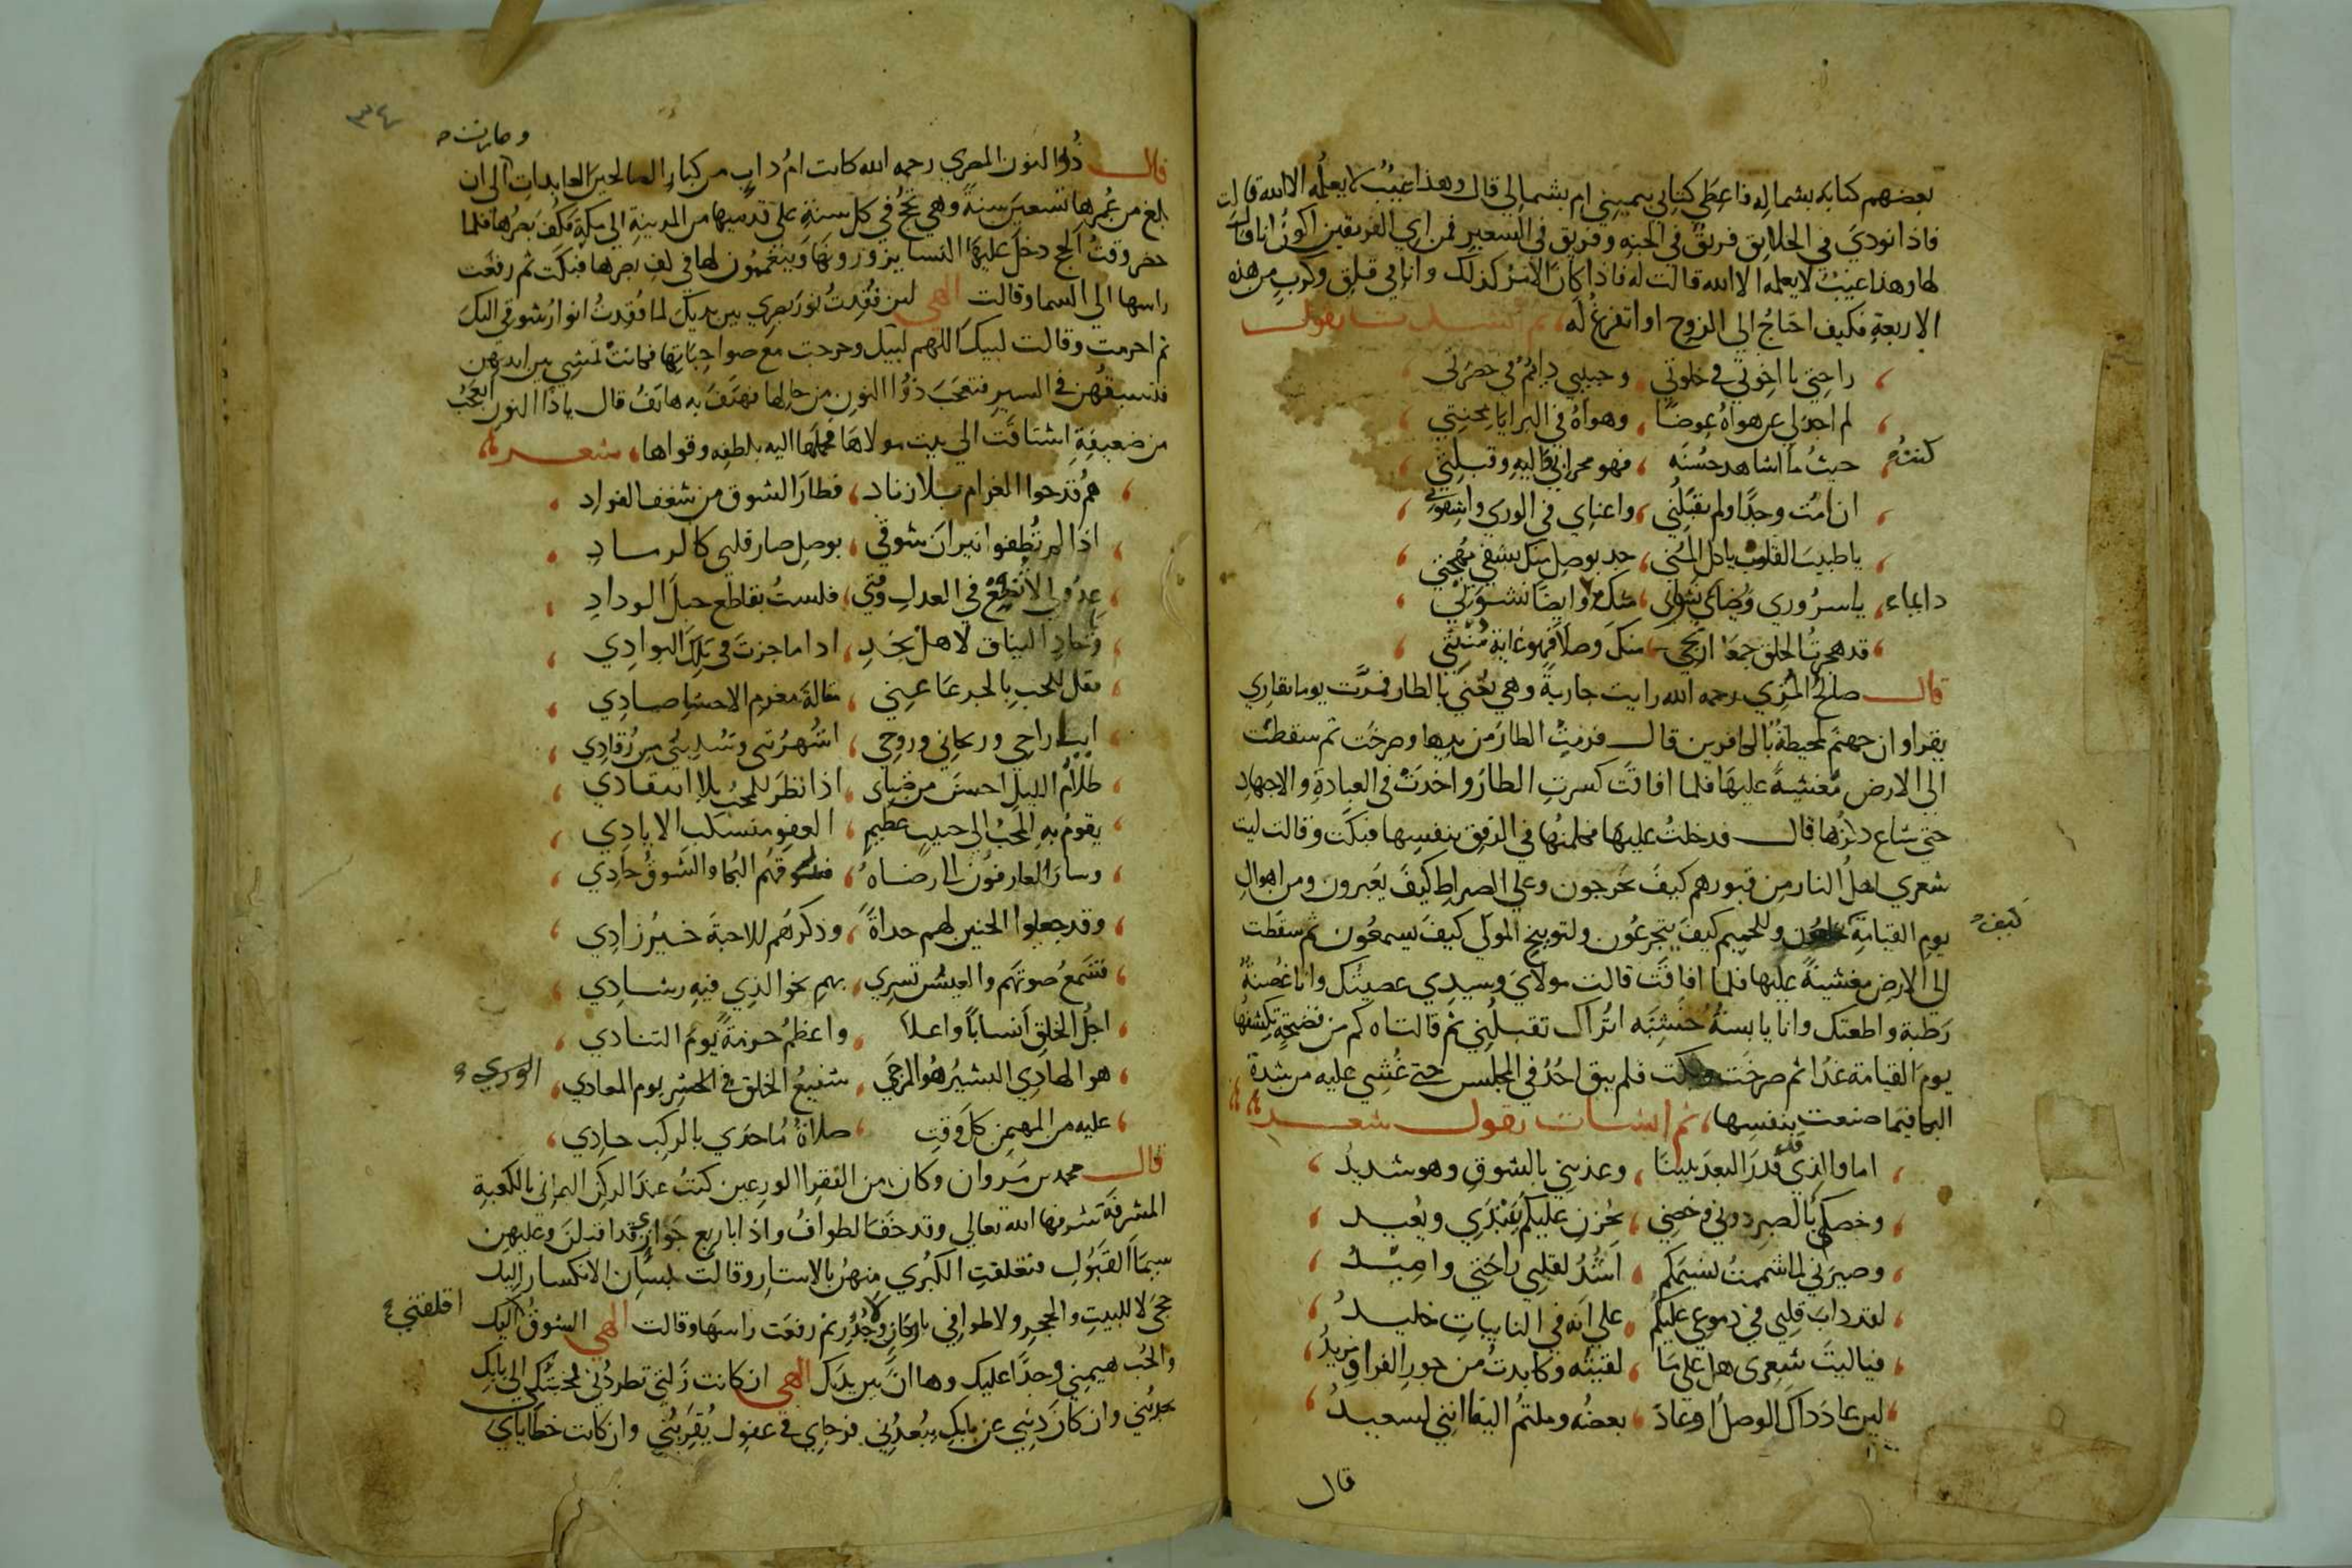 بعضهم كتابه بشماله فاعطي كتابي بيميني ام بشمالي قال وهذا غيب لا يعلمه الا الله قالت
فاذا نودي في الخلايق فريق في الجنه وفريق في السعير فمن اي الفريقين اكون انا قال
لها وهذا غيب لا يعلمه الا الله قالت له فاذا كان الامر كذلك وانا في قلق وكرب من هذه
الاربعة فكيف احتاج الي الزوج او اتفرغ له ثم انشدت تقول
راحتي يا اخوتي في خلوتي وحبيبي دايم في حضرتي
لم اجد لي عن هواه عوضا وهواه في البرايا محنتي
كنت
حيث ما اشاهد حسنه فهو محرابي اليه وقبلتي
ان امت وجدا ولم تقبلني واعناي في الوري واشقوتي
يا طبيب القلوب يا كل المني جد بوصل منك يشفي مهجتي
دايما يا سروري وحياتي منك وايضا نشوتي
قد هجرت الخلق جمعا ارتجي منك وصلا فهو غاية منيتي
قال صلح المري رحمه الله رايت جارية وهي تغني بالطار فمرت يوما بقاري
يقرا وان جهنم لمحيطة بالكافرين قال فرمت الطار من يدها وصرخت ثم سقطت
الي الارض مغشية عليها فلما افاقت كسرت الطار واخدت في العبادة والاجهاد
حتي شاع ذكرها قال فدخلت عليها فكلمتها في الرفق بنفسها فبكت وقالت ليت
شعري اهل النار من قبورهم كيف يخرجون وعلي الصراط كيف يعبرون ومن اهوال
يوم القيامة وللحميم كيف يتجرعون ولتوبيخ المولي كيف يسمعون ثم سقطت
كيف
الي الارض مغشية عليها فلما افاقت قالت مولاي وسيدي عصيتك وانا غصنة
رطبة واطعتك وانا يابسة خشبة اتراك تقبلني ثم قالت اه كم من فضيحة تكشفها
يوم القيامة غدا ثم صرخت وبكت فلم يبق احد في المجلس حتي غشي عليه من شدة
البكا فيما صنعت بنفسها ثم انشات تقول شعر
اما والذي قد قدر البعد بيننا وعذبني بالشوق وهو شديد
وخصكم بالصبر دوني وخصني بحزن عليكم يبتدي ويعيد
وصيرني لما شممت نسيمكم اشد لقلبي راحتي واميد
لقد داب قلبي في دموعي عليكم علي انه في النايبات جليد
فياليت شعري هل علي ما لقيته وكابدت من جور الفراق مزيد
لين عاد داك الوصل او عاد بعضه وملتم اللقا انني لسعيد
قال
٣٤
وصارت
قال ذو النون المصري رحمه الله كانت ام داب من كبار الصالحين العابدات الي ان
بلغ من عمرها تسعين سنة وهي تحج في كل سنة علي قدميها من المدينة الي مكة فكف بصرها فلما
حضر وقت الحج دخل عليها النسا يزورونها ويتغممون لها في كف بصرها فبكت ثم رفعت
راسها الي السما وقالت الهي لين فقدت نور بصري بين يديك لما فقدت انوار شوقي اليك
ثم احرمت وقالت لبيك اللهم لبيك وخرجت مع صواحباتها فكانت تمشي بين ايديهن
فتسبقهن في السير فتعجب ذو النون من حالها فهتف به هاتف قال يا ذا النون اتعجب
من ضعيفة اشتاقت الي بيت مولاها فحملها اليه بلطفه وقواها شعر
هم قدحوا الغرام بلا زناد فطار الشوق من شغف الفواد
اذا لم تطفوا نيران شوقي بوصل صار قلبي كالرماد
عذولي لا تطع في العدل فلست بقاطع حبل الوداد
وحادي النياق لاهل نجد اذا ما جزت في تلك البوادي
فقل للحب بالجرعا عني مقالة مغرم الاحشا صادي
ايا راحي وريحاني وروحي اشهرتني وتسلبني من رقادي
ظلام الليل احسن من ضياي اذا نظر المحب بلا انتقادي
يقوم به المحب الي حبيب عظيم العفو منسكب الايادي
وسار العارفون الي رضاه يسوقهم البكا والشوق حادي
وقد جعلوا الحنين لهم حداة وذكرهم للاحبة خير زادي
فتسمع صوتهم والعيس تسري بهم نحو الذي فيه رشادي
اجل الخلق انسابا واعلا واعظم حرمة يوم التنادي
هو الهادي البشير هو المرجي شفيع الخلق في الحشر يوم المعادي
الوري
عليه من المهيمن كل وقت صلاة ما حدي بالركب حادي
قال محمد بن مروان وكان من الفقرا الورعين كنت عند الركن اليماني بالكعبة
المشرفة شرفها الله تعالي وقد خف الطواف واذا باربع جواري قد اقبلن وعليهن
سيما القبول فتعلقت الكبري منهن بالاستار وقالت بلسان الانكسار اليك
حجي لا للبيت والحجر ولا طوافي باركان ولا جدر ثم رفعت راسها وقالت الهي الشوق اليك
اقلقني
والحب هيمني وجدا عليك وها انا بين يديك الهي ان كانت زلتي تطردني فمحبتك الي بابك
تجذبني وان كان ذنبي عن بابك يبعدني فرجاي في عفوك يقربني وان كانت خطاياي